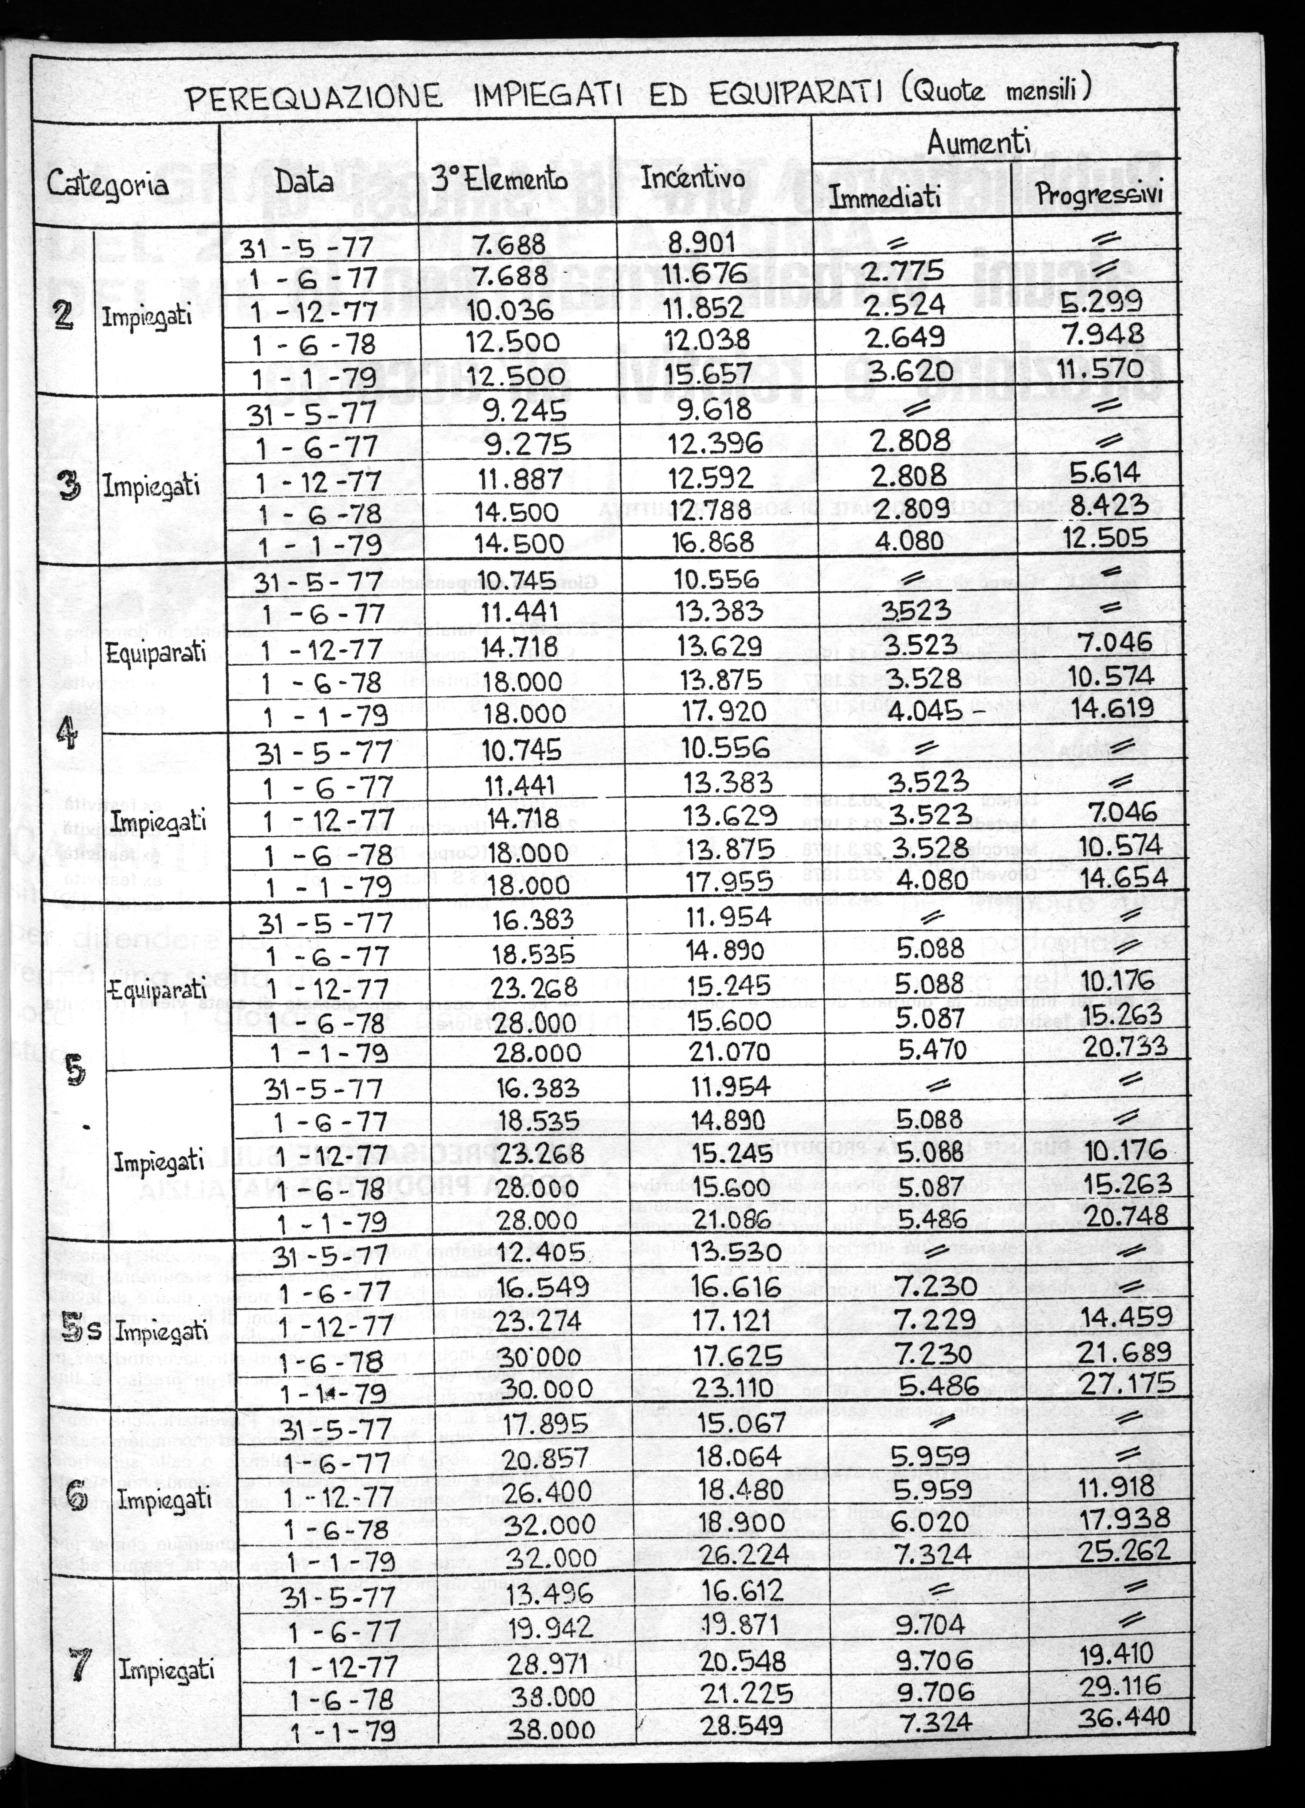 PEREQUAZIONE IMPIEGATI ED EQUIPARATI (Quote mensili)
Categoria Data 3° Elemento Incentivo Aumenti
Immediati Progressivi
2 Impiegati
31-5-77 7.688 8.901 = =
1-6-77 7.688 11.676 2.775 =
1-12-77 10.036 11.852 2.524 5.299
1-6-78 12.500 12.038 2.649 7.948
1-1-79 12.500 15.657 3.620 11.570
3 Impiegati
31-5-77 9.245 9.618 = =
1-6-77 9.275 12.396 2.808 =
1-12-77 11.887 12.592 2.808 5.614
1-6-78 14.500 12.788 2.809 8.423
1-1-79 14.500 16.868 4.080 12.505
4 Equiparati
31-5-77 10.745 10.556 = =
1-6-77 11.441 13.383 3523 =
1-12-77 14.718 13.629 3.523 7.046
1-6-78 18.000 13.875 3.528 10.574
1-1-79 18.000 17.920 4.045- 14.619
Impiegati
31-5-77 10.745 10.556 = =
1-6-77 11.441 13.383 3.523 =
1-12-77 14.718 13.629 3.523 7.046
1-6-78 18.000 13.875 3.528 10.574
1-1-79 18.000 17.955 4.080 14.654
5 Equiparati
31-5-77 16.383 11.954 = =
1-6-77 18.535 14.890 5.088 =
1-12-77 23.268 15.245 5.088 10.176
1-6-78 28.000 15.600 5.087 15.263
1-1-79 28.000 21.070 5.470 20.733
Impiegati
31-5-77 16.383 11.954 = =
1-6-77 18.535 14.890 5.088 =
1-12-77 23.268 15.245 5.088 10.176
1-6-78 28.000 15.600 5.087 15.263
1-1-79 28.000 21.086 5.486 20.748
5s Impiegati
31-5-77 12.405 13.530 = =
1-6-77 16.549 16.616 7.230 =
1-12-77 23.274 17.121 7.229 14.459
1-6-78 30.000 17.625 7.230 21.689
1-1-79 30.000 23.110 5.486 27.175
6 Impiegati
31-5-77 17.895 15.067 = =
1-6-77 20.857 18.064 5.959 =
1-12-77 26.400 18.480 5.959 11.918
1-6-78 32.000 18.900 6.020 17.938
1-1-79 32.000 26.224 7.324 25.262
7 Impiegati
31-5-77 13.496 16.612 = =
1-6-77 19.942 19.871 9.704 =
1-12-77 28.971 20.548 9.706 19.410
1-6-78 38.000 21.225 9.706 29.116
1-1-79 38.000 28.549 7.324 36.440